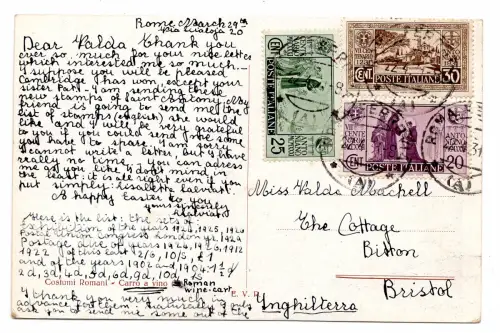 Rome March 29th
Via Cualoja 20
Dear Valda Thank you
ever so much for your nice letter
which interested me so much.
I suppose you will be pleased
Cambridge has won, except your
sister Pat! I am sending the
new stamps of Saint Antony. My
friend is going to tell me the
list of stamps (english) she would
like and I will be very grateful
to you if you could send me some
you have to spare. I am sorry
I cannot write a letter, but I have
really no time, you can adress
me as you like I don't mind in
the least: it is all right even if you
put simply: isaletta
A happy Easter to you
yours sincerely
Here is the list: the sets of
exhibition of the years 1924, 1925, 1926
Postal Union Congress London 1929
Postage due of years 1924, 1926, 1912
1922 of this last 12/6, 10/5, £1
and of the years 1902 and 1904: 1½d
2d, 3d, 4d, 5d, 6d, 9d, 10d, 1s
Costumi Romani - Carro a vino Roman
wine-cart
E. V. R.
I thank you very much in
advance for them. Naturally I only
ask you to send me some out of the
POSTE ITALIANE
CENT. 25
POSTE ITALIANE
CENT. 30
POSTE ITALIANE
CENT. 20
ROMA
Miss Valda Machell
The Cottage
Bitton
Bristol
Inghilterra